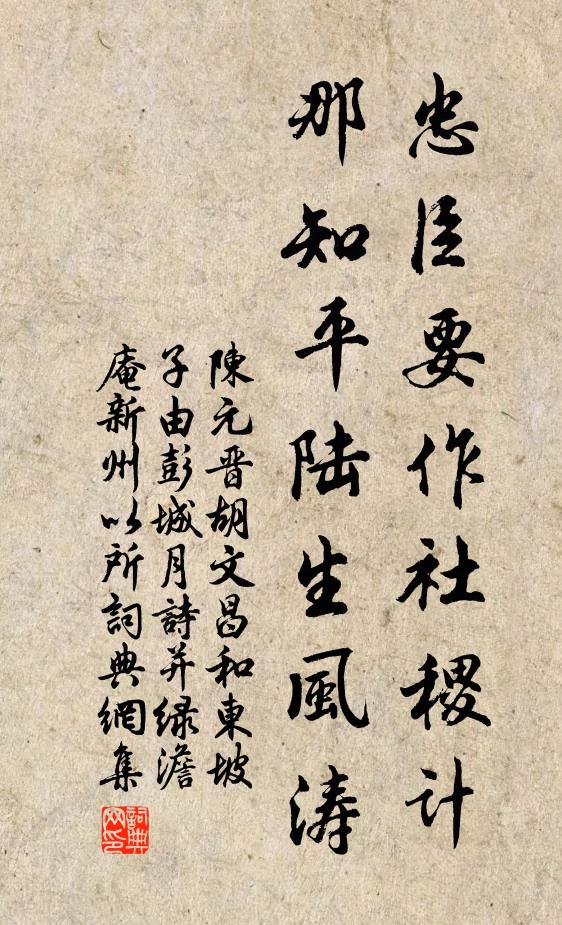 忠臣要作社稷计
那知平陆生風涛
陳元晋胡文昌和東坡
子由彭城月詩并绿澹
庵新州以所詞典網集
詞典网印